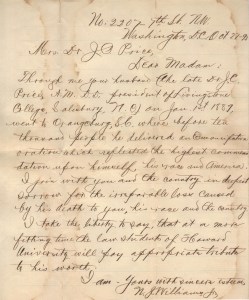 No. 2207 9th St. N.W.
Washington, D.C. Oct 28-93
Mrs. Dr. J.C. Price,
Dear Madam:
Through me your husband (the late Dr. J.C.
Price, A.M. D.D. president of Livingstone
College, Salisbury, N.C.) on Jan 1st 1889,
went to Orangeburg, S.C. where before ten
thousand people he delivered an Emancipation
oration which reflected the highest commen-
dation upon himself, his race and America.
I join with you and the country in deepest
sorrow for the irreparable loss caused
by his death to you, his race and the country
I take the liberty to say, that at a more
fitting time the Law Students of Howard
University will pay appropriate tribute
to his worth.
I am Yours with sincere esteem
Williams, Jr.